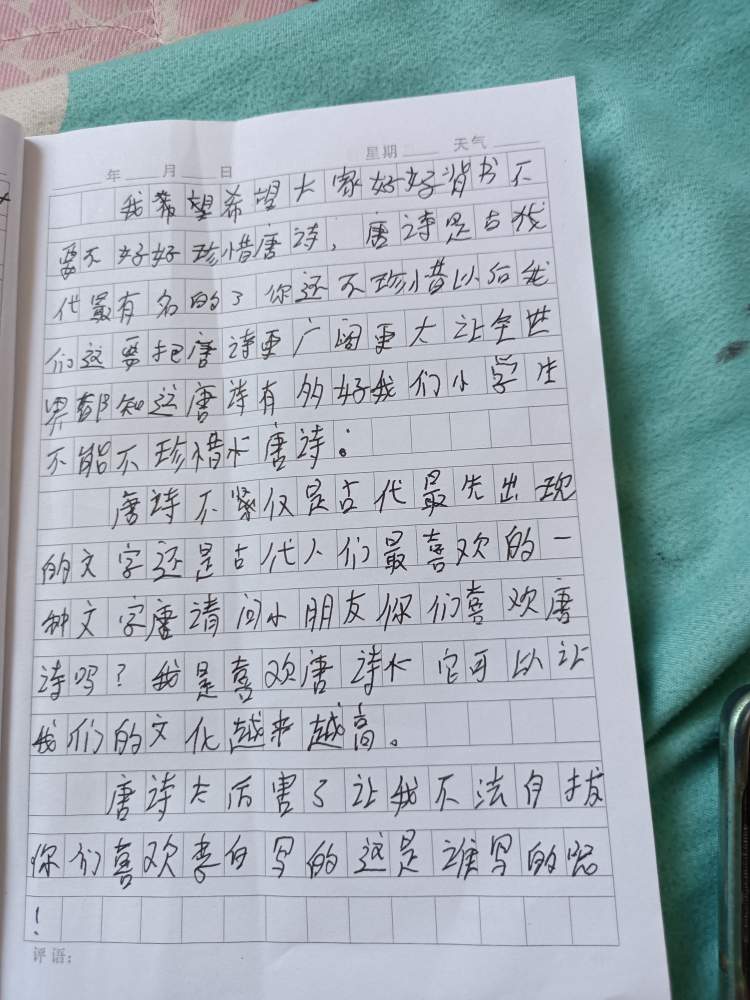 年 月 日 星期 天气
我希望希望大家好好背书不
要不好好珍惜唐诗，唐诗是古我
代最有名的了你还不珍惜以后我
们这要把唐诗更广阔更大让全世
界都知这唐诗有的好我们小学生
不能不珍惜水唐诗。
唐诗不紧仅是古代最先出现
的文字还是古代人们最喜欢的一
种文字唐请问小朋友你们喜欢唐
诗吗？我是喜欢唐诗水它可以让
我们的文化越来越高。
唐诗太厉害了让我不法自拔
你们喜欢李白写的这是谁写的
！
评语：